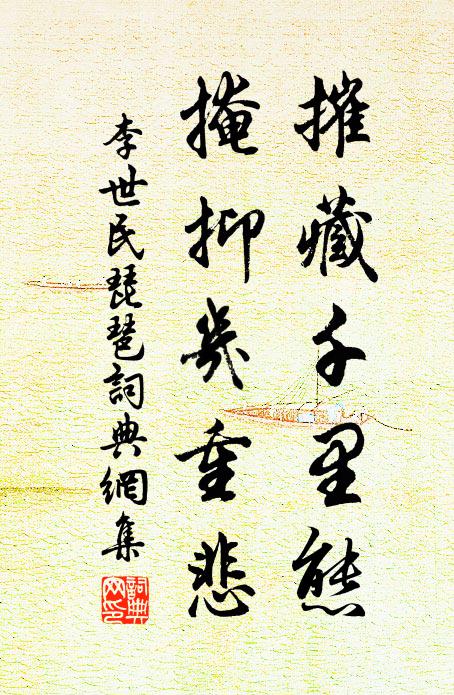 摧藏千里態
掩抑幾重悲
李世民琵琶詞典網集
詞典
网印